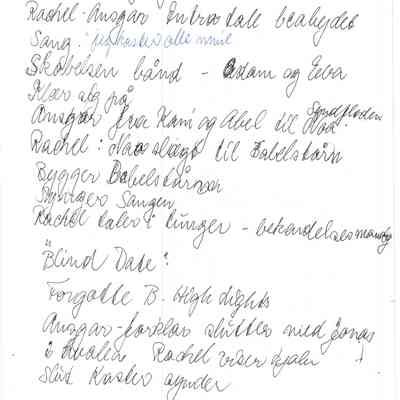 Rachel - Ansgar Intro tale bearbejdet
Sang: jeg kaster alle mine
Skabelsen bånd - Adam og Eva
Klær sig på
Ansgar fra Kain og Abel til Noa Syndfloden
Rachel: Noas slægt til Babelstårn
Bygger Babelstårnet
Synger Sangen
Rachel taler i tunger -
"Blind Date"
Forgotte B. High Lights
Ansgar - forklar slutter med Jonas
i hvalen Rachel viser hjælm
Slut Kaster synder